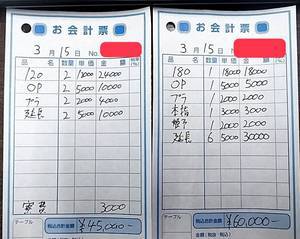 お会計票
3月15日 No.
品名 数量 単価 金額
120 2 12000 24000
OP 2 5000 10000
プラ 2 2000 4000
延長 2 5000 10000
3000
テーブル 税込合計金額 ¥45,000-
お会計票
3月15日 No.
品名 数量 単価 金額
180 1 18000 18000
OP 1 5000 5000
プラ 1 2000 2000
本指 1 3000 3000
1 2000 2000
延長 6 5000 30000
テーブル 税込合計金額 ¥60,000-